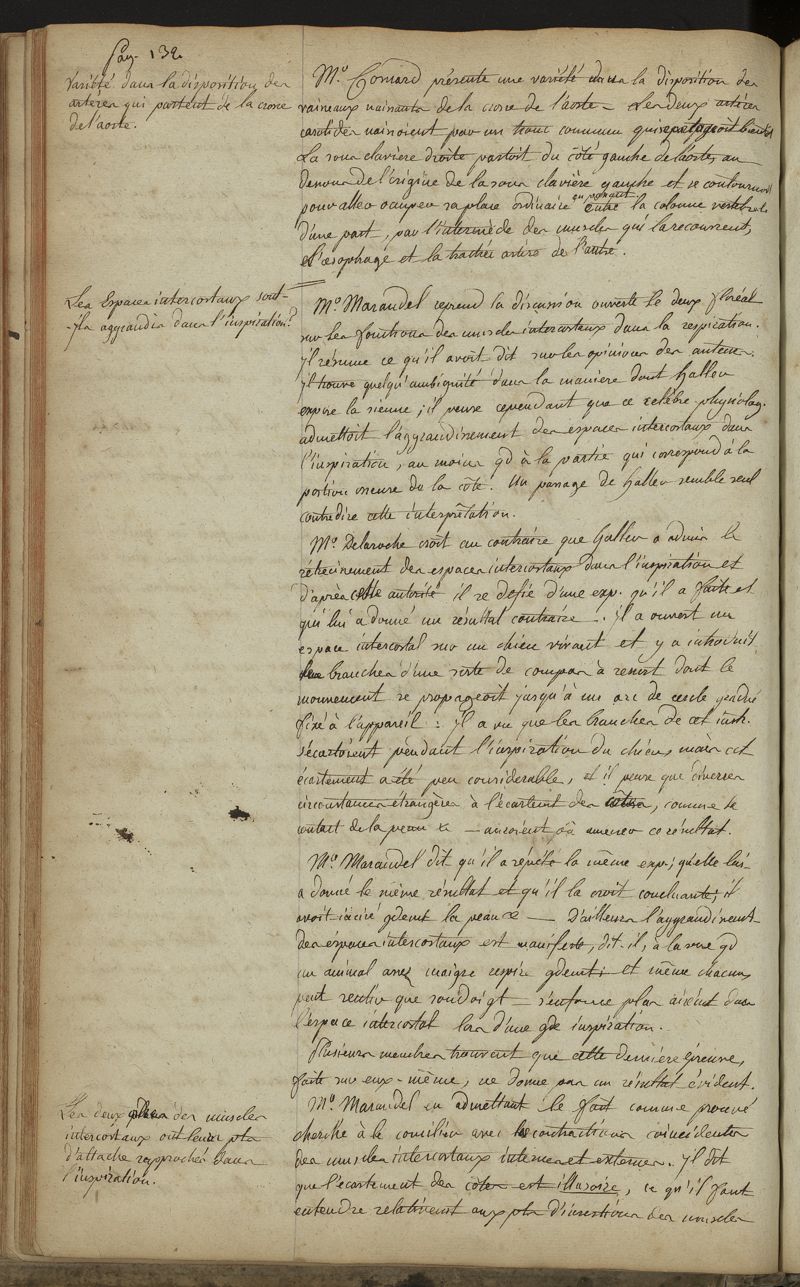 Pag. 132.
Variété dans la disposition des
artères qui partent de la crosse
de l'aorte.
Mr. présente une variété dans la disposition des
vaisseaux naissants de la crosse de l'aorte – Les deux artères
carotides naissoient par un tronc commun qui se partageoit bientôt
La sous clavière droite partoit du côté gauche de l'aorte, au
dessous de l'origine de la sous clavière gauche et se contournoit
pour aller occuper sa place ordinaire en passant entre la colonne vertebrale
d'une part, par l'intermède des muscles qui la recouvrent,
et l'œsophage et la trachée artère de l'autre.
Les Espaces intercostaux sont-
-ils aggrandis dans l'inspiration?
Mr. Marandel reprend la discussion ouverte le deux floréal
sur les fonctions des muscles intercostaux dans la respiration.
Il résume ce qu'il avoit dit sur les opinions des auteurs.
Il trouve quelqu'ambiguité dans la maniere dont Haller
expose la sienne; il pense cependant que ce célèbre physiolog.
admettoit l'aggrandissement des espaces intercostaux dans
l'inspiration, au moins qd à la partie qui correspond à la
portion osseuse de la côte. Un passage de Haller semble seul
contredire cette interprétation.
Mr. Delaroche croit au contraire que Haller a admis le
rétrécissement des espaces intercostaux dans l'inspiration et
d'après cette autorité il se défie d'une exp. qu'il a faite et
qui lui a donné un résultat contraire. Il a ouvert un
espace intercostal sur un chien vivant et y a introduit
les branches d'une sorte de compas à ressort dont le
mouvement se propageoit jusqu'à un arc de cercle gradué
fixé à l'appareil: Il a vu que les branches de cet inst.
s'écartoient pendant l'inspiration du chien, mais cet
écartement a été peu considerable, et il pense que diverses
circonstances étrangères à l'écartemt des côtes, comme le
contact de la peau &c – auroient pû amener ce résultat.
Mr. Marandel dit qu'il a répété la même exp; qu'elle lui
a donné le même résultat et qu'il la croit concluante; il
avoit incisé gdemt la peau &c — D'ailleurs l'aggrandissemt
des espaces intercostaux est manifeste, dit-il, à la vue qd
un animal assez maigre respire gdemt; et même chacun
peut sentir que son doigt – s'enfonce plus aisémt dans
l'espace intercostal lors d'une gde inspiration.
Plusieurs membres trouvent que cette dernière épreuve,
faite sur eux-même, ne donne pas un résultat évident.
Les deux plans des muscles
intercostaux ont leurs pts
d'attache rapprochés dans
l'inspiration.
Mr. Marandel en admettant le fait comme prouvé
cherche à le concilier avec les contractions coincidentes
des muscles intercostaux internes et externes. Il dit
que l'écartement des côtes est illusoire, ce qu'il faut
entendre relativemt aux pts d'insertions des muscles